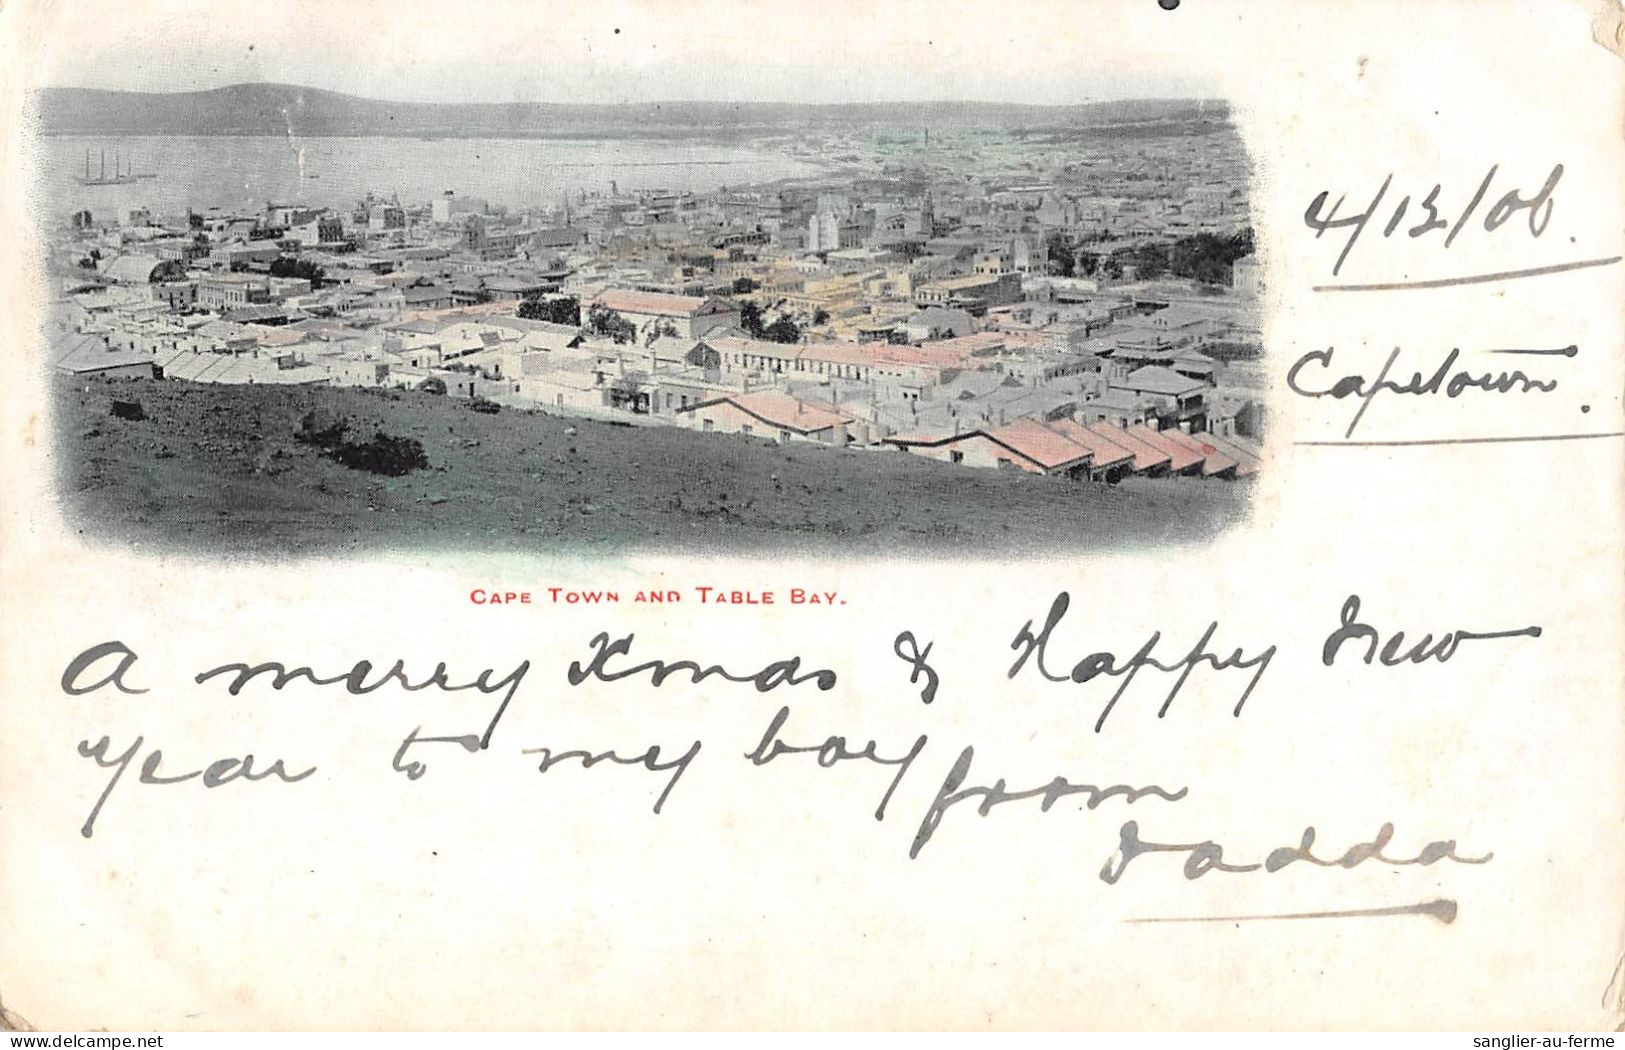 4/12/06.
Capetown.
CAPE TOWN AND TABLE BAY.
A merry Xmas & Happy New
Year to my boy from
Dadda
delcampe.net
sanglier-au-ferme